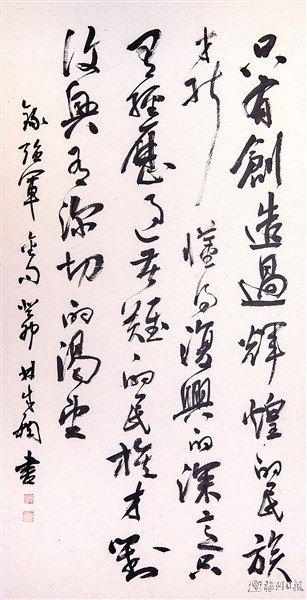 只有創造過輝煌的民族
才能懂得復興的深意只
有經歷過苦難的民族才對
復興有深切的渴望
錄強軍金句 癸卯 林 書
梅州日报